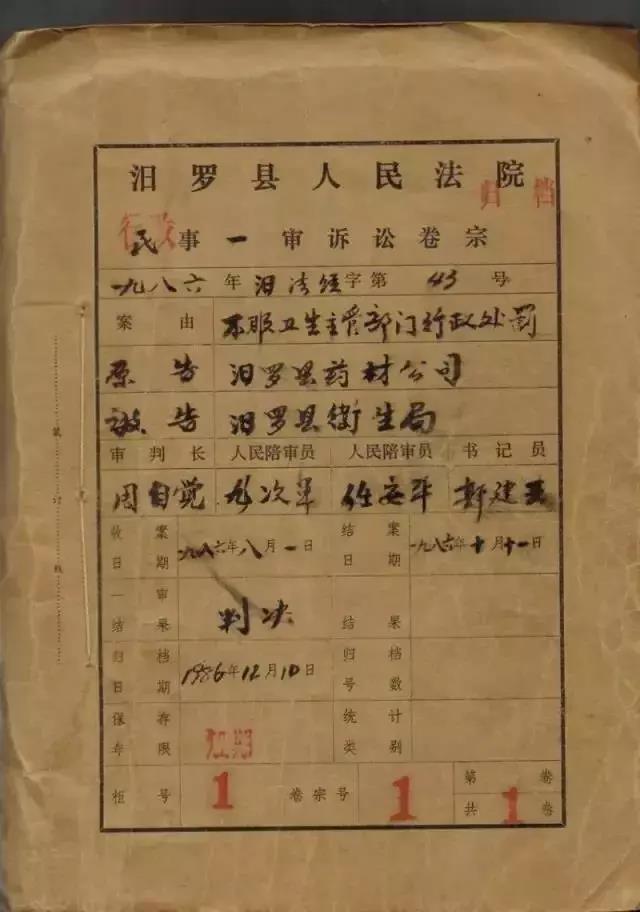 汨罗县人民法院
归档
行政
民事一审诉讼卷宗
一九八六年汨法经字第43号
案由 不服卫生主管部门行政处罚
原告 汨罗县药材公司
被告 汨罗县衛生局
审判长 人民陪审员 人民陪审员 书记员
周自觉 次军 任安平 建
收案日期 一九八六年八月一日 结案日期 一九八六年十月十一日
一审结果 判决 结果
归档日期 1986年12月10日 归档号数
保存年限 长期 统计类别
柜号 1 卷宗号 1 第卷
共1卷
装订线